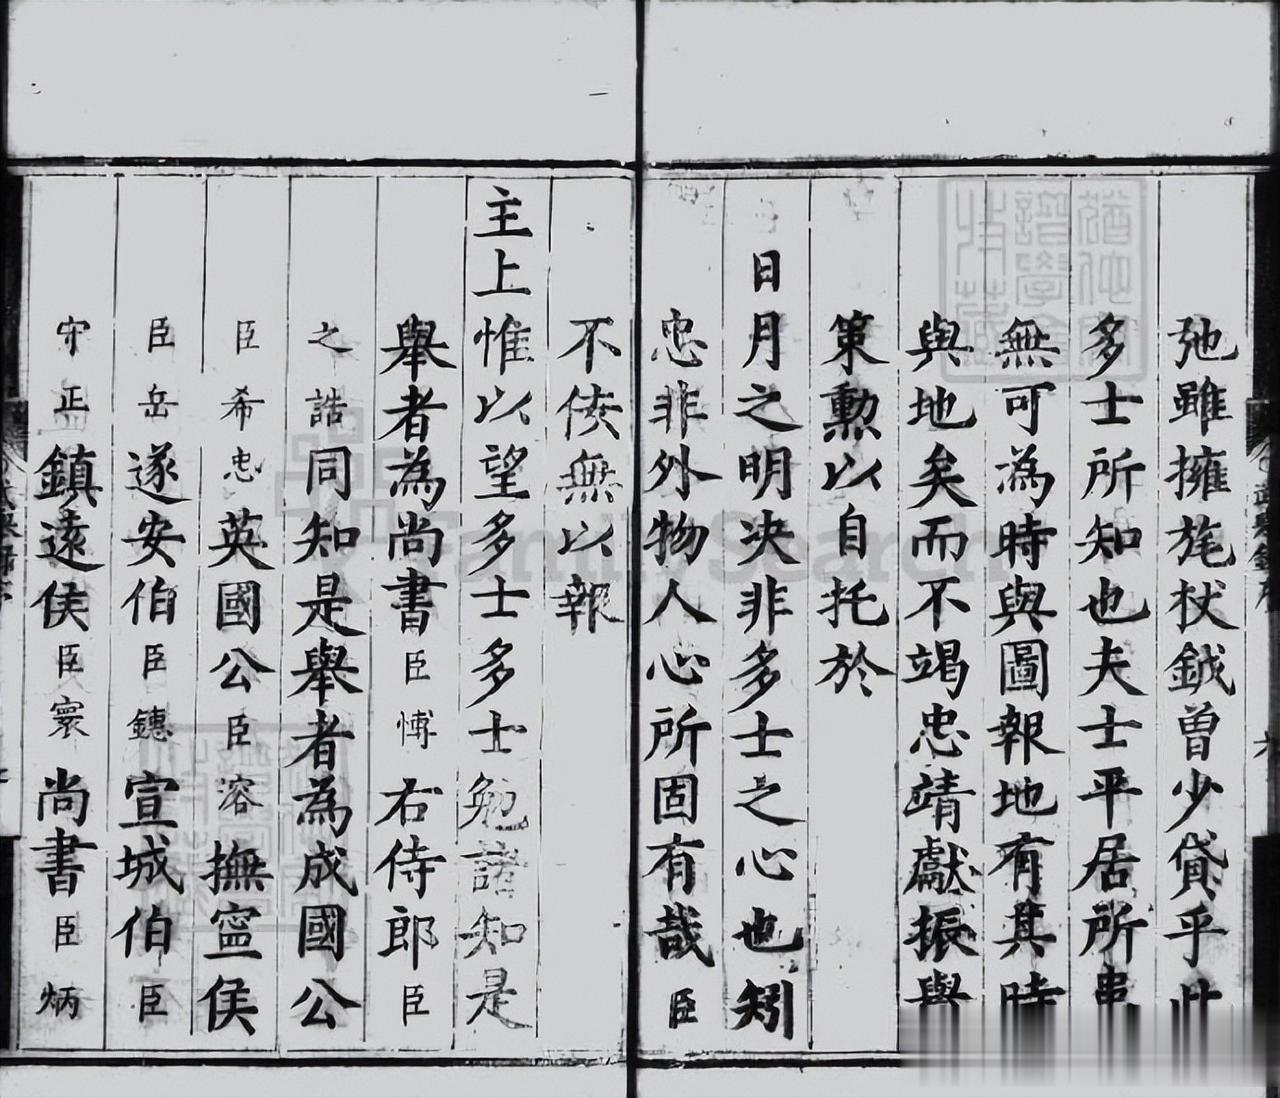 弛雖擁旄杖鉞曽少貸乎此
多士所知也夫士平居所患
無可為時與圖報地有其時
與地矣而不竭忠靖獻振舉
策勲以自托於
日月之明決非多士之心也矧
忠非外物人心所固有哉臣
不佞無以報
主上惟以望多士多士勉諸知是
舉者為尚書臣愽右侍郎臣
之誥同知是舉者為成國公
臣希忠英國公臣溶撫寧侯
臣岳遂安伯臣鏸宣城伯臣
守正鎮遠侯臣寰尚書臣炳
FamilySearch